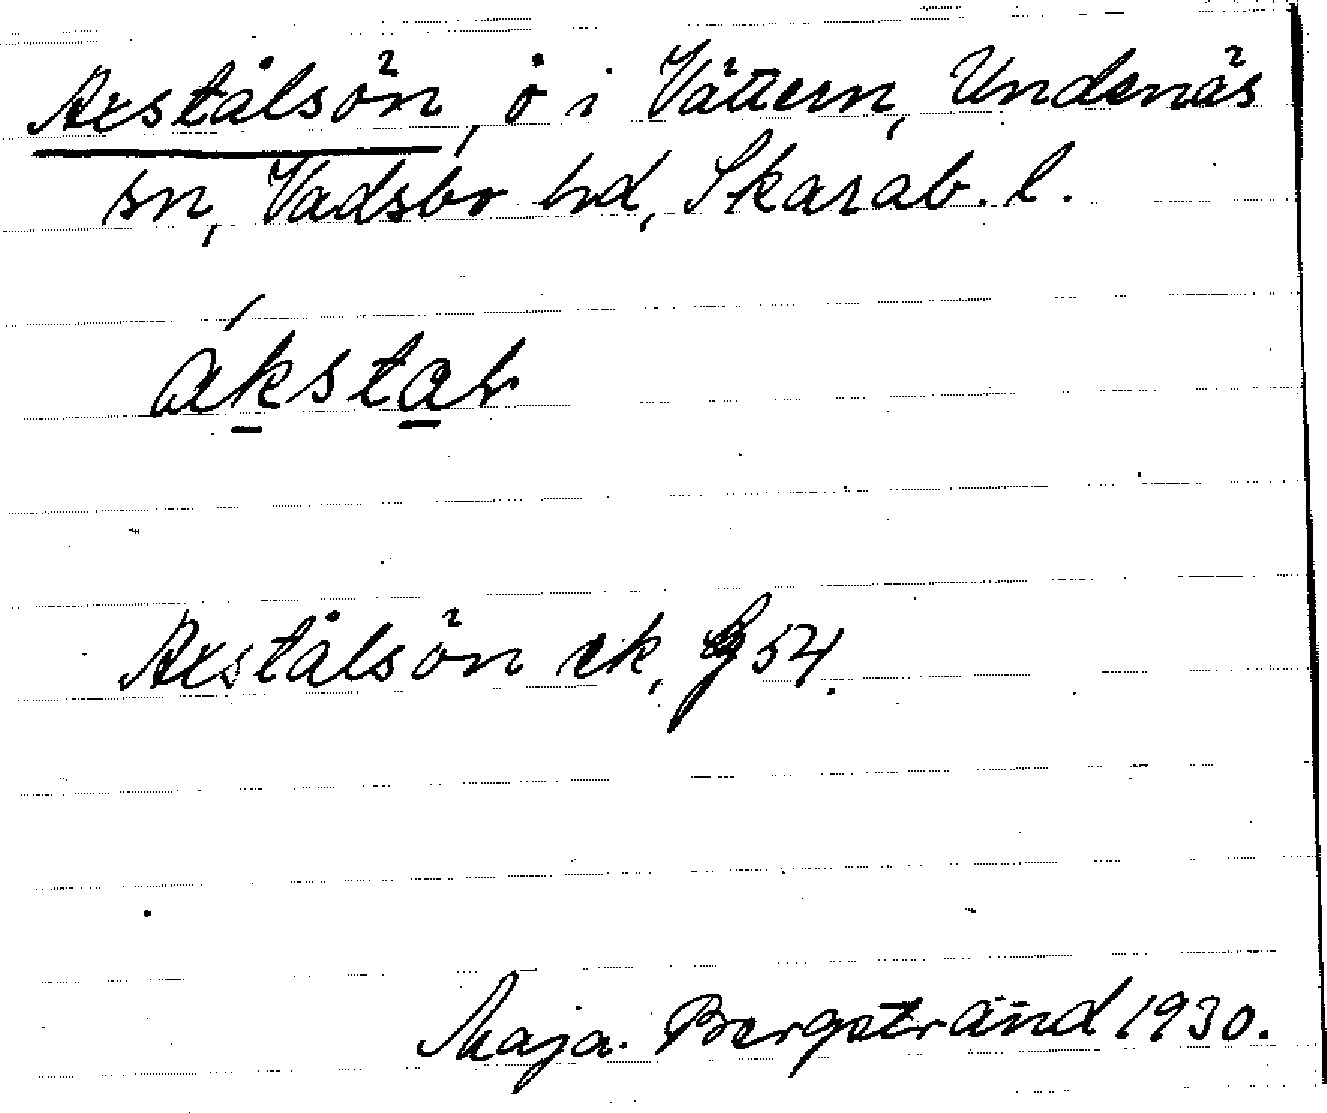 Axstålsön, ö i Vättern, Undenäs
sn, Vadsbo hd, Skarab. l.
Axstålsön ek, 54.
Maja Bergstrand 1930.